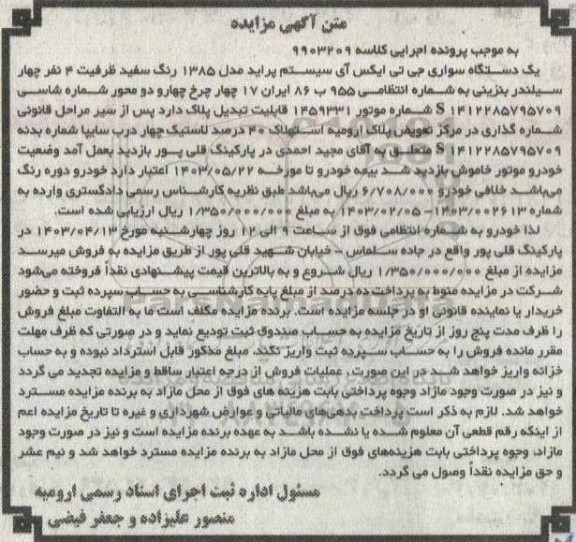 متن آگهی مزایده
به موجب پرونده اجرایی کلاسه ۹۹۰۳۲۰۹
یک دستگاه سواری جی تی ایکس آی سیستم پراید مدل ۱۳۸۵ رنگ سفید ظرفیت ۴ نفر چهار
سیلندر بنزینی به شماره انتظامی ۹۵۵ ب ۸۶ ایران ۱۷ چهار چرخ چهارو دو محور شماره شاسی
S ۱۴۱۲۲۸۵۷۹۵۷۰۹ شماره موتور ۱۴۵۹۳۳۱ قابلیت تبدیل پلاک دارد پس از سیر مراحل قانونی
شماره گذاری در مرکز تعویض پلاک ارومیه استهلاک ۴۰ درصد لاستیک چهار درب سایپا شماره بدنه
S ۱۴۱۲۲۸۵۷۹۵۷۰۹ متعلق به آقای مجید احمدی در پارکینگ قلی پور بازدید بعمل آمد وضعیت
خودرو موتور خاموش بازدید شد بیمه خودرو تا مورخه ۱۴۰۳/۰۵/۲۲ اعتبار دارد خودرو دوره رنگ
می‌باشد خلافی خودرو ۶/۷۰۸/۰۰۰ ریال می‌باشد طبق نظریه کارشناس رسمی دادگستری وارده به
شماره ۱۴۰۳/۰۰۲۶۱۳-۱۴۰۳/۰۲/۰۵ به مبلغ ۱/۳۵۰/۰۰۰/۰۰۰ ریال ارزیابی شده است.
لذا خودرو به شماره انتظامی فوق از ساعت ۹ الی ۱۲ روز چهارشنبه مورخ ۱۴۰۳/۰۴/۱۳ در
پارکینگ قلی پور واقع در جاده سلماس - خیابان شهید قلی پور از طریق مزایده به فروش میرسد
مزایده از مبلغ ۱/۳۵۰/۰۰۰/۰۰۰ ریال شروع و به بالاترین قیمت پیشنهادی نقداً فروخته می‌شود
شرکت در مزایده منوط به پرداخت ده درصد از مبلغ پایه کارشناسی به حساب سپرده ثبت و حضور
خریدار یا نماینده قانونی او در جلسه مزایده است. برنده مزایده مکلف است ما به التفاوت مبلغ فروش
را ظرف مدت پنج روز از تاریخ مزایده به حساب صندوق ثبت تودیع نماید و در صورتی که ظرف مهلت
مقرر مانده فروش را به حساب سپرده ثبت واریز نکند، مبلغ مذکور قابل استرداد نبوده و به حساب
خزانه واریز خواهد شد در این صورت، عملیات فروش از درجه اعتبار ساقط و مزایده تجدید می گردد
و نیز در صورت وجود مازاد وجوه پرداختی بابت هزینه های فوق از محل مازاد به برنده مزایده مسترد
خواهد شد. لازم به ذکر است پرداخت بدهی‌های مالیاتی و عوارض شهرداری و غیره تا تاریخ مزایده اعم
از اینکه رقم قطعی آن معلوم شده یا نشده باشد به عهده برنده مزایده است و نیز در صورت وجود
مازاد، وجوه پرداختی بابت هزینه‌های فوق از محل مازاد به برنده مزایده مسترد خواهد شد و نیم عشر
و حق مزایده نقداً وصول می گردد.
مسئول اداره ثبت اجرای اسناد رسمی ارومیه
منصور علیزاده و جعفر فیضی